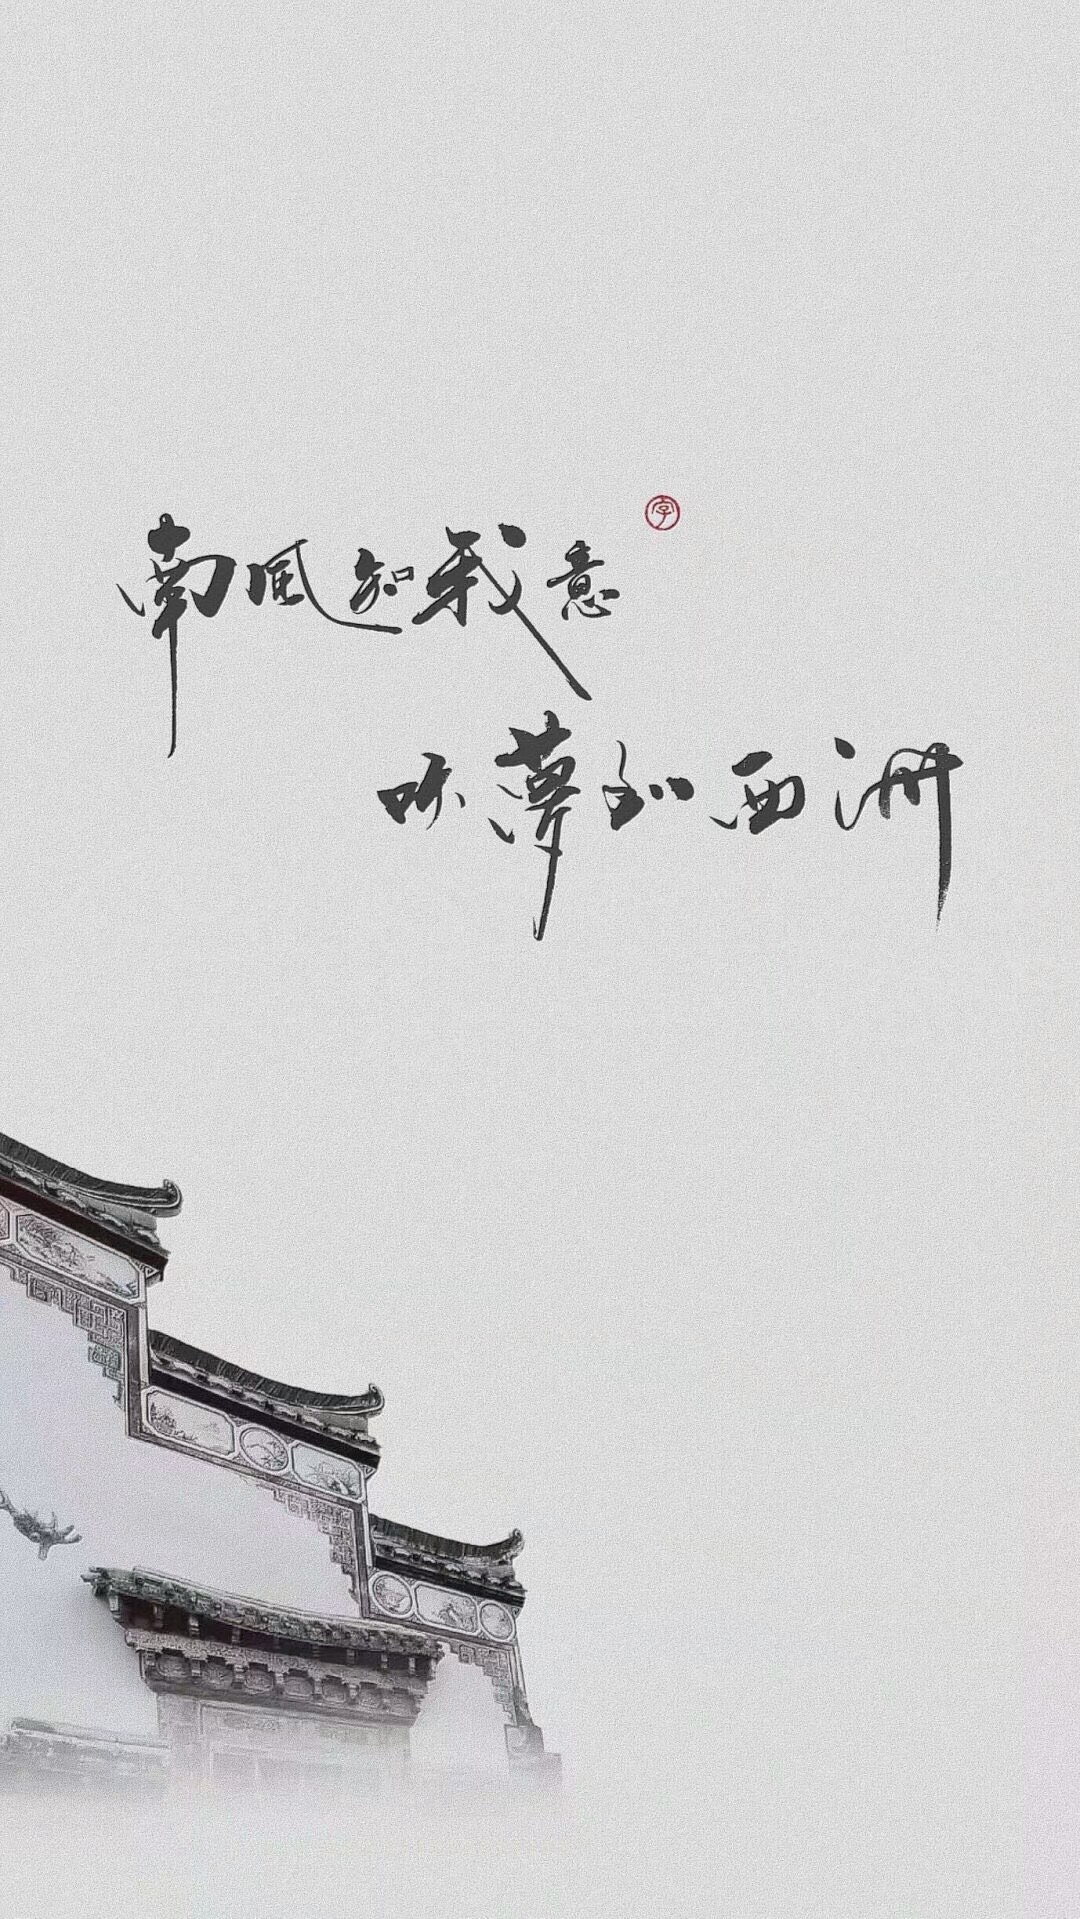 字
南風知我意
吹夢到西洲